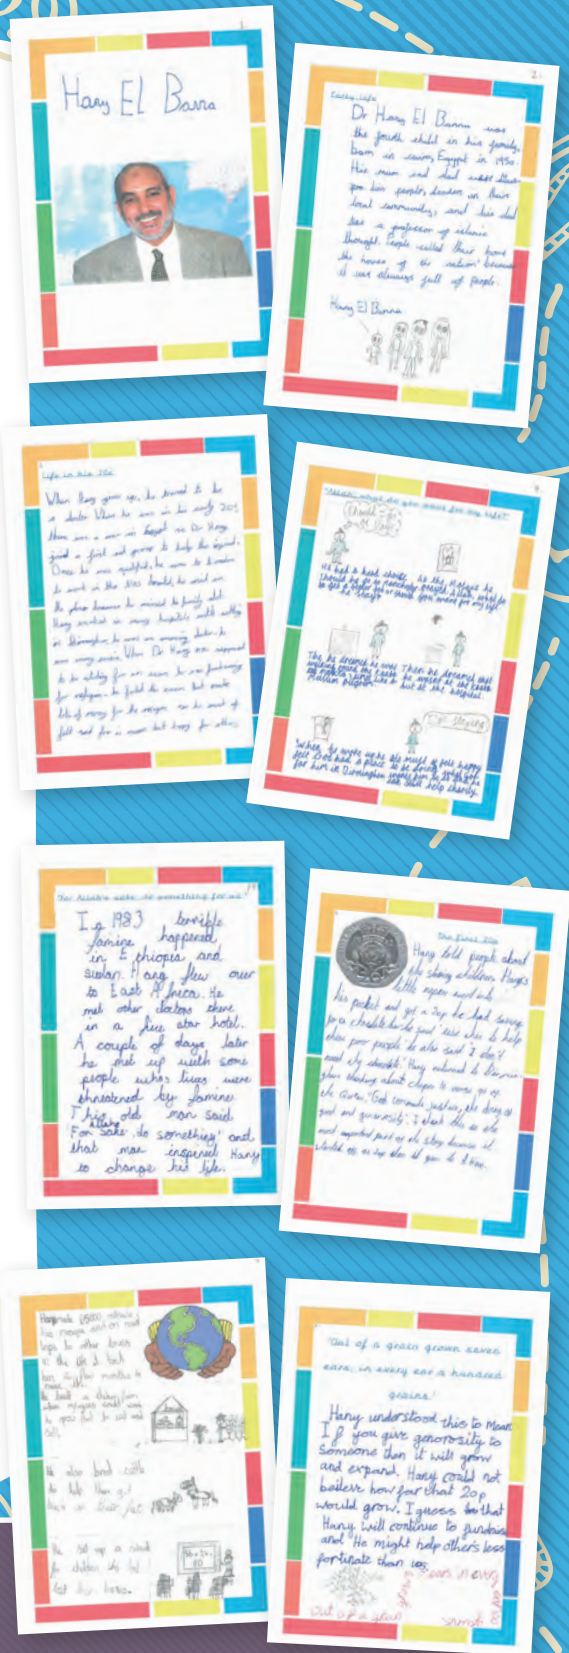 1.
Hany El Banna
2.
Early Life
Dr Hany El Banna was
the fourth child in his family,
born in cairo, Egypt in 1950.
His mum and dad were
people, leaders in their
local community, and his dad
was a professor of islamic
thought. People called their home
the house of the nation because
it was always full of people.
Hany El Banna
Life in his 20s
When Hany grew up, he trained to be
a doctor. When he was in his early 20s
there was a war in Egypt so Dr Hany
joined a first aid group to help the injured.
Once he was qualified, he came to London
to work in the NHS.
the plane because he missed his family
Hany worked in many hospitals
in Birmingham, he was an amazing doctor, he
won many awards. When Dr Hany was supposed
to be studying for an exam, he was fundraising
for refugees, he failed the exam but made
lots of money for the refugees so he must of
felt sad for a exam but happy for others.
"Allah, what do you want for my life?"
Should I go or stay?
He had a hard choice
should he go to
to get a better job or should
he stay?
At the Mosque he
prayed Allah, what do
you want for my life
The he dreamed he was
walking round the kaaba
in makka, just like a
Muslim pilgrim.
Then he dreamed that
he wasn't at the kaaba
but at the hospital.
I'm staying
When he woke up he
felt God had a place
for him in Birmingham
He must of felt happy
to be doing what God
wants him to do and he
can still help charity.
"For Allah's sake, do something for us"
In 1983 terrible
famine happened
in Ethiopia and
sudan. Hany flew over
to East Africa. He
met other doctors there
in a five star hotel.
A couple of days later
he met up with some
people who's lives were
threatened by famine.
This old man said
'For Allahs sake, do something' and
that man inspired Hany
to change his life.
The first 20p
Hany told people about
the starving children. Hany's
little nephew went into
his pocket and got a 20p he had saving
for a chocolate bar he said 'use this to help
these poor people' he also said 'I don't
need my chocolate.' Hany returned to Birmingham
plane thinking about chapter 16 verse 90 of
the Quran, 'God commands justice, the doing of
good and generosity'. I think this is the
most important part of the story because it
started off as 20p then it grew to £1 million.
Hany made £5000 outside
two mosques and on road
trips to other towns
in the UK. It took
him a few months to
make this.
He built a chicken farm
where refugees could work
to grow food to eat and
sell.
He also bred cattle
to help them get
back on their feet.
He set up a school
for children who had
lost their homes.
"Out of a grain grows seven
ears, in every ear a hundred
grains."
Hany understood this to mean
If you give generosity to
someone then it will grow
and expand. Hany could not
beileve how far that 20p
would grow. I guess that
Hany will continue to fundraise
and He might help other's less
fortinate than us.
out of a grain
grows
seven
ears in every
ear a